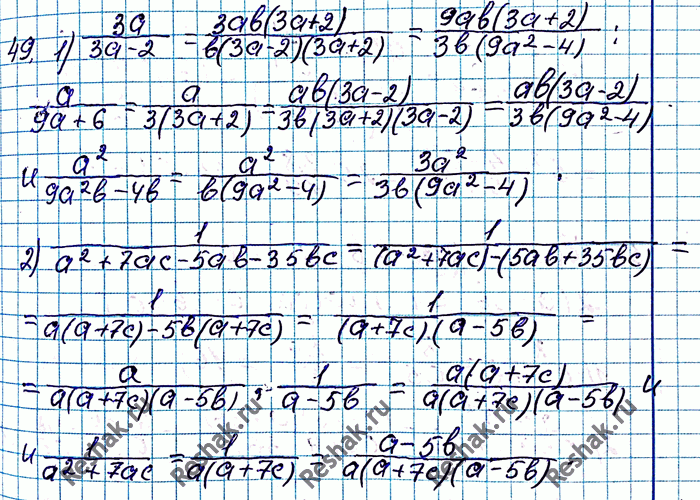 49. 1) 3a/(3a-2) = 3ab(3a+2)/(b(3a-2)(3a+2)) = 9ab(3a+2)/(3b(9a²-4)) ;
a/(9a+6) = a/(3(3a+2)) = ab(3a-2)/(3b(3a+2)(3a-2)) = ab(3a-2)/(3b(9a²-4))
и a²/(9a²b-4b) = a²/(b(9a²-4)) = 3a²/(3b(9a²-4)) .
2) 1/(a²+7ac-5ab-35bc) = 1/((a²+7ac)-(5ab+35bc)) =
= 1/(a(a+7c)-5b(a+7c)) = 1/((a+7c)(a-5b)) =
= a/(a(a+7c)(a-5b)) ; 1/(a-5b) = a(a+7c)/(a(a+7c)(a-5b)) и
и 1/(a²+7ac) = 1/(a(a+7c)) = a-5b/(a(a+7c)(a-5b)) .
Reshak.ru
Reshak.ru
Reshak.ru
Reshak.ru